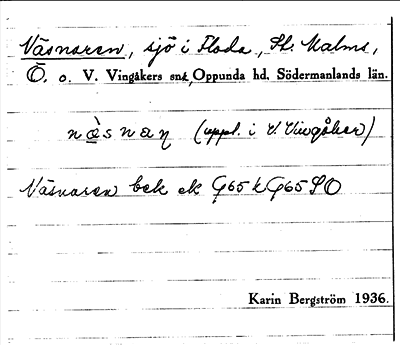 Näsnaren, sjö i Floda, St. Malms,
Ö. o. V. Vingåkers snr, Oppunda hd, Södermanlands län.
(uppl. i V. Vingåker)
Näsnaren bek ek G65 SO
Karin Bergström 1936.